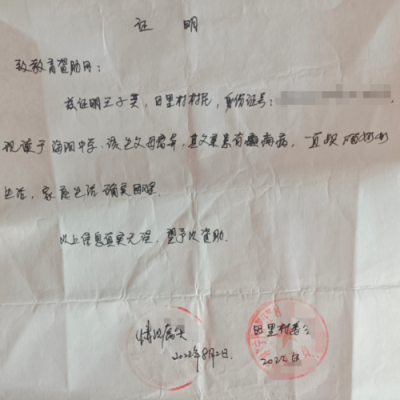 证 明
致教育资助网：
兹证明王子英，田里村村民，身份证号：
现读于海阳中学，该生父母离异，且父亲患有癫痫病，一直跟
生活，家庭生活确实困难。
以上信息真实无误，望予以资助。
情况属实 田里村委
2022年8月2日 2022